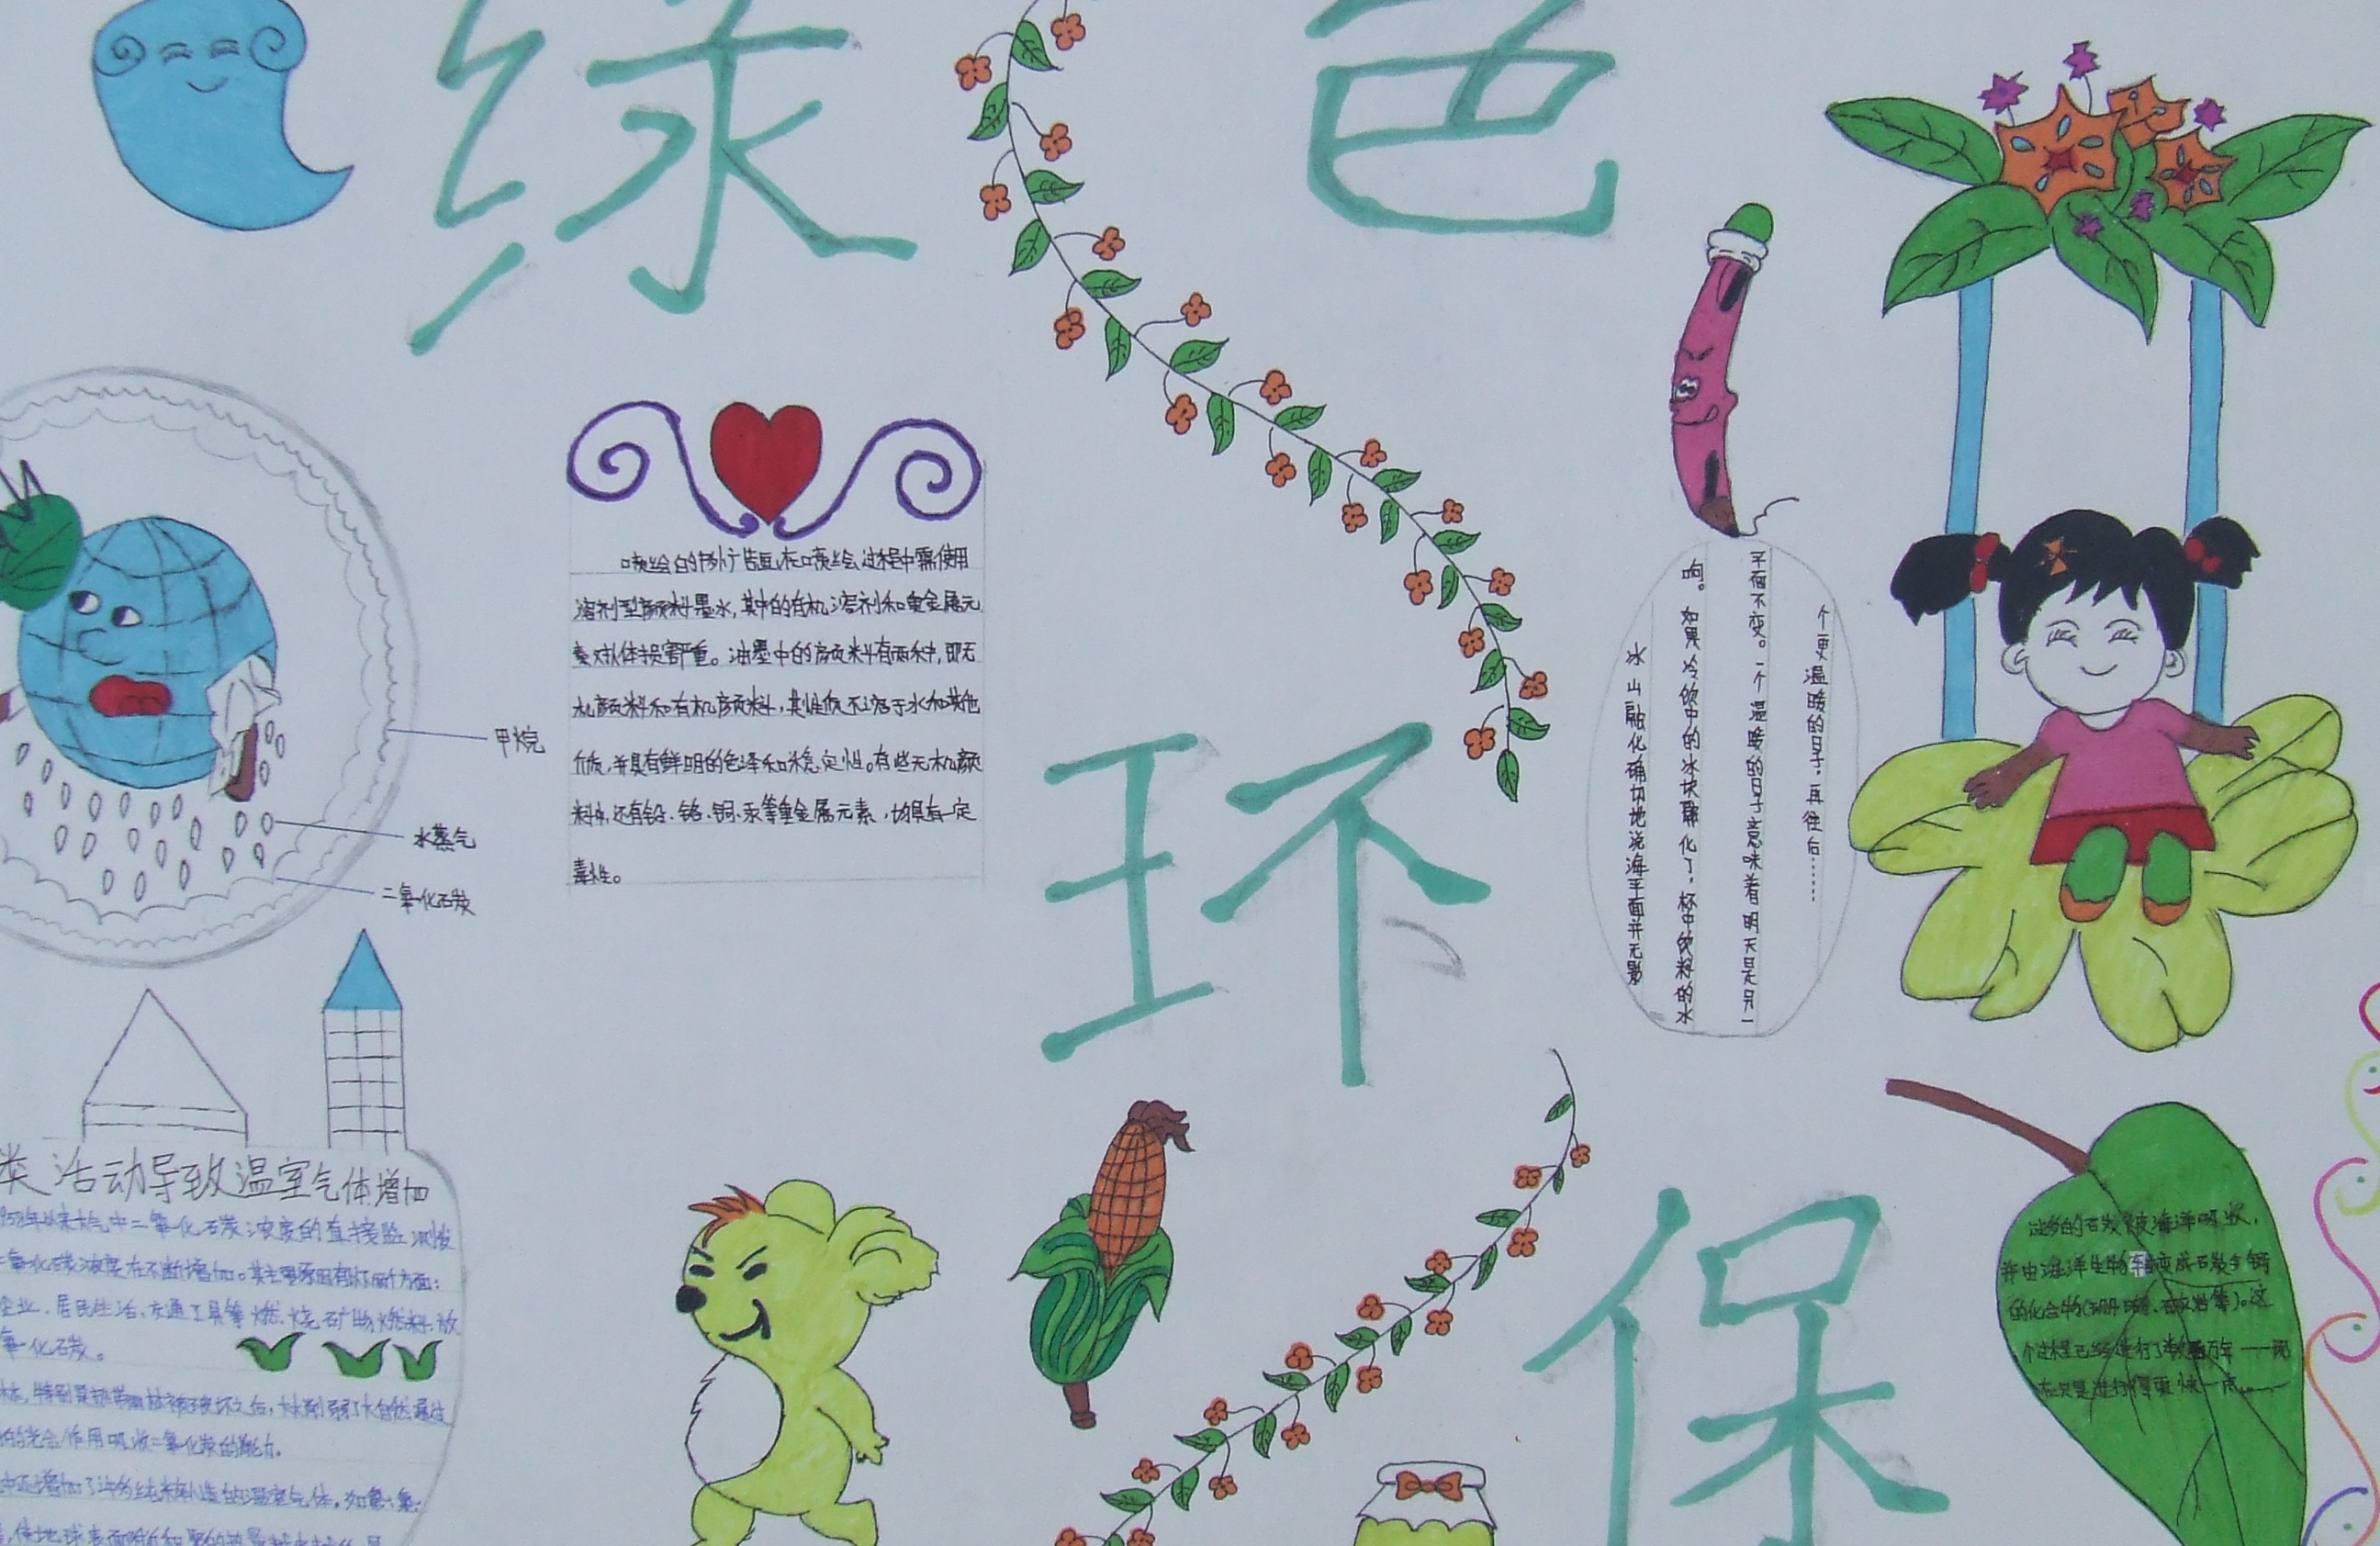 绿色
环
保
喷绘的户外广告画,在喷绘过程中需使用
溶剂型颜料墨水,其中的有机溶剂和重金属元
素对人体损害严重。油墨中的颜料有两种,即无
机颜料和有机颜料,其性质不溶于水和其他
介质,并具有鲜明的色泽和稳定性。有些无机颜
料中,还有铅、铬、铜、汞等重金属元素,均具有一定
毒性。
甲烷
水蒸气
二氧化石炭
冰山融化确切地说海平面并无影
响。如果冷饮中的冰块融化了,杯中饮料的水
平面不变。一个温暖的日子意味着明天是另一
个更温暖的日子,再往后……
类活动导致温室气体增加
958年以来大气中二氧化石炭浓度的直接监测发
二氧化石炭浓度在不断增加。其主要原因有以下两个方面:
企业、居民生活、交通工具等燃烧矿物燃料,放
氧化石炭。
林,特别是热带雨林被破坏之后,大大削弱了大自然通过
的光合作用吸收二氧化炭的能力。
中还增加了许多纯粹人造的温室气体,如
过多的石炭被海洋吸收,
并由海洋生物转变成石炭与钙
的化合物(珊瑚、石灰岩等)。这
个过程已经进行了数百万年——现
在只是进行得更快一点……